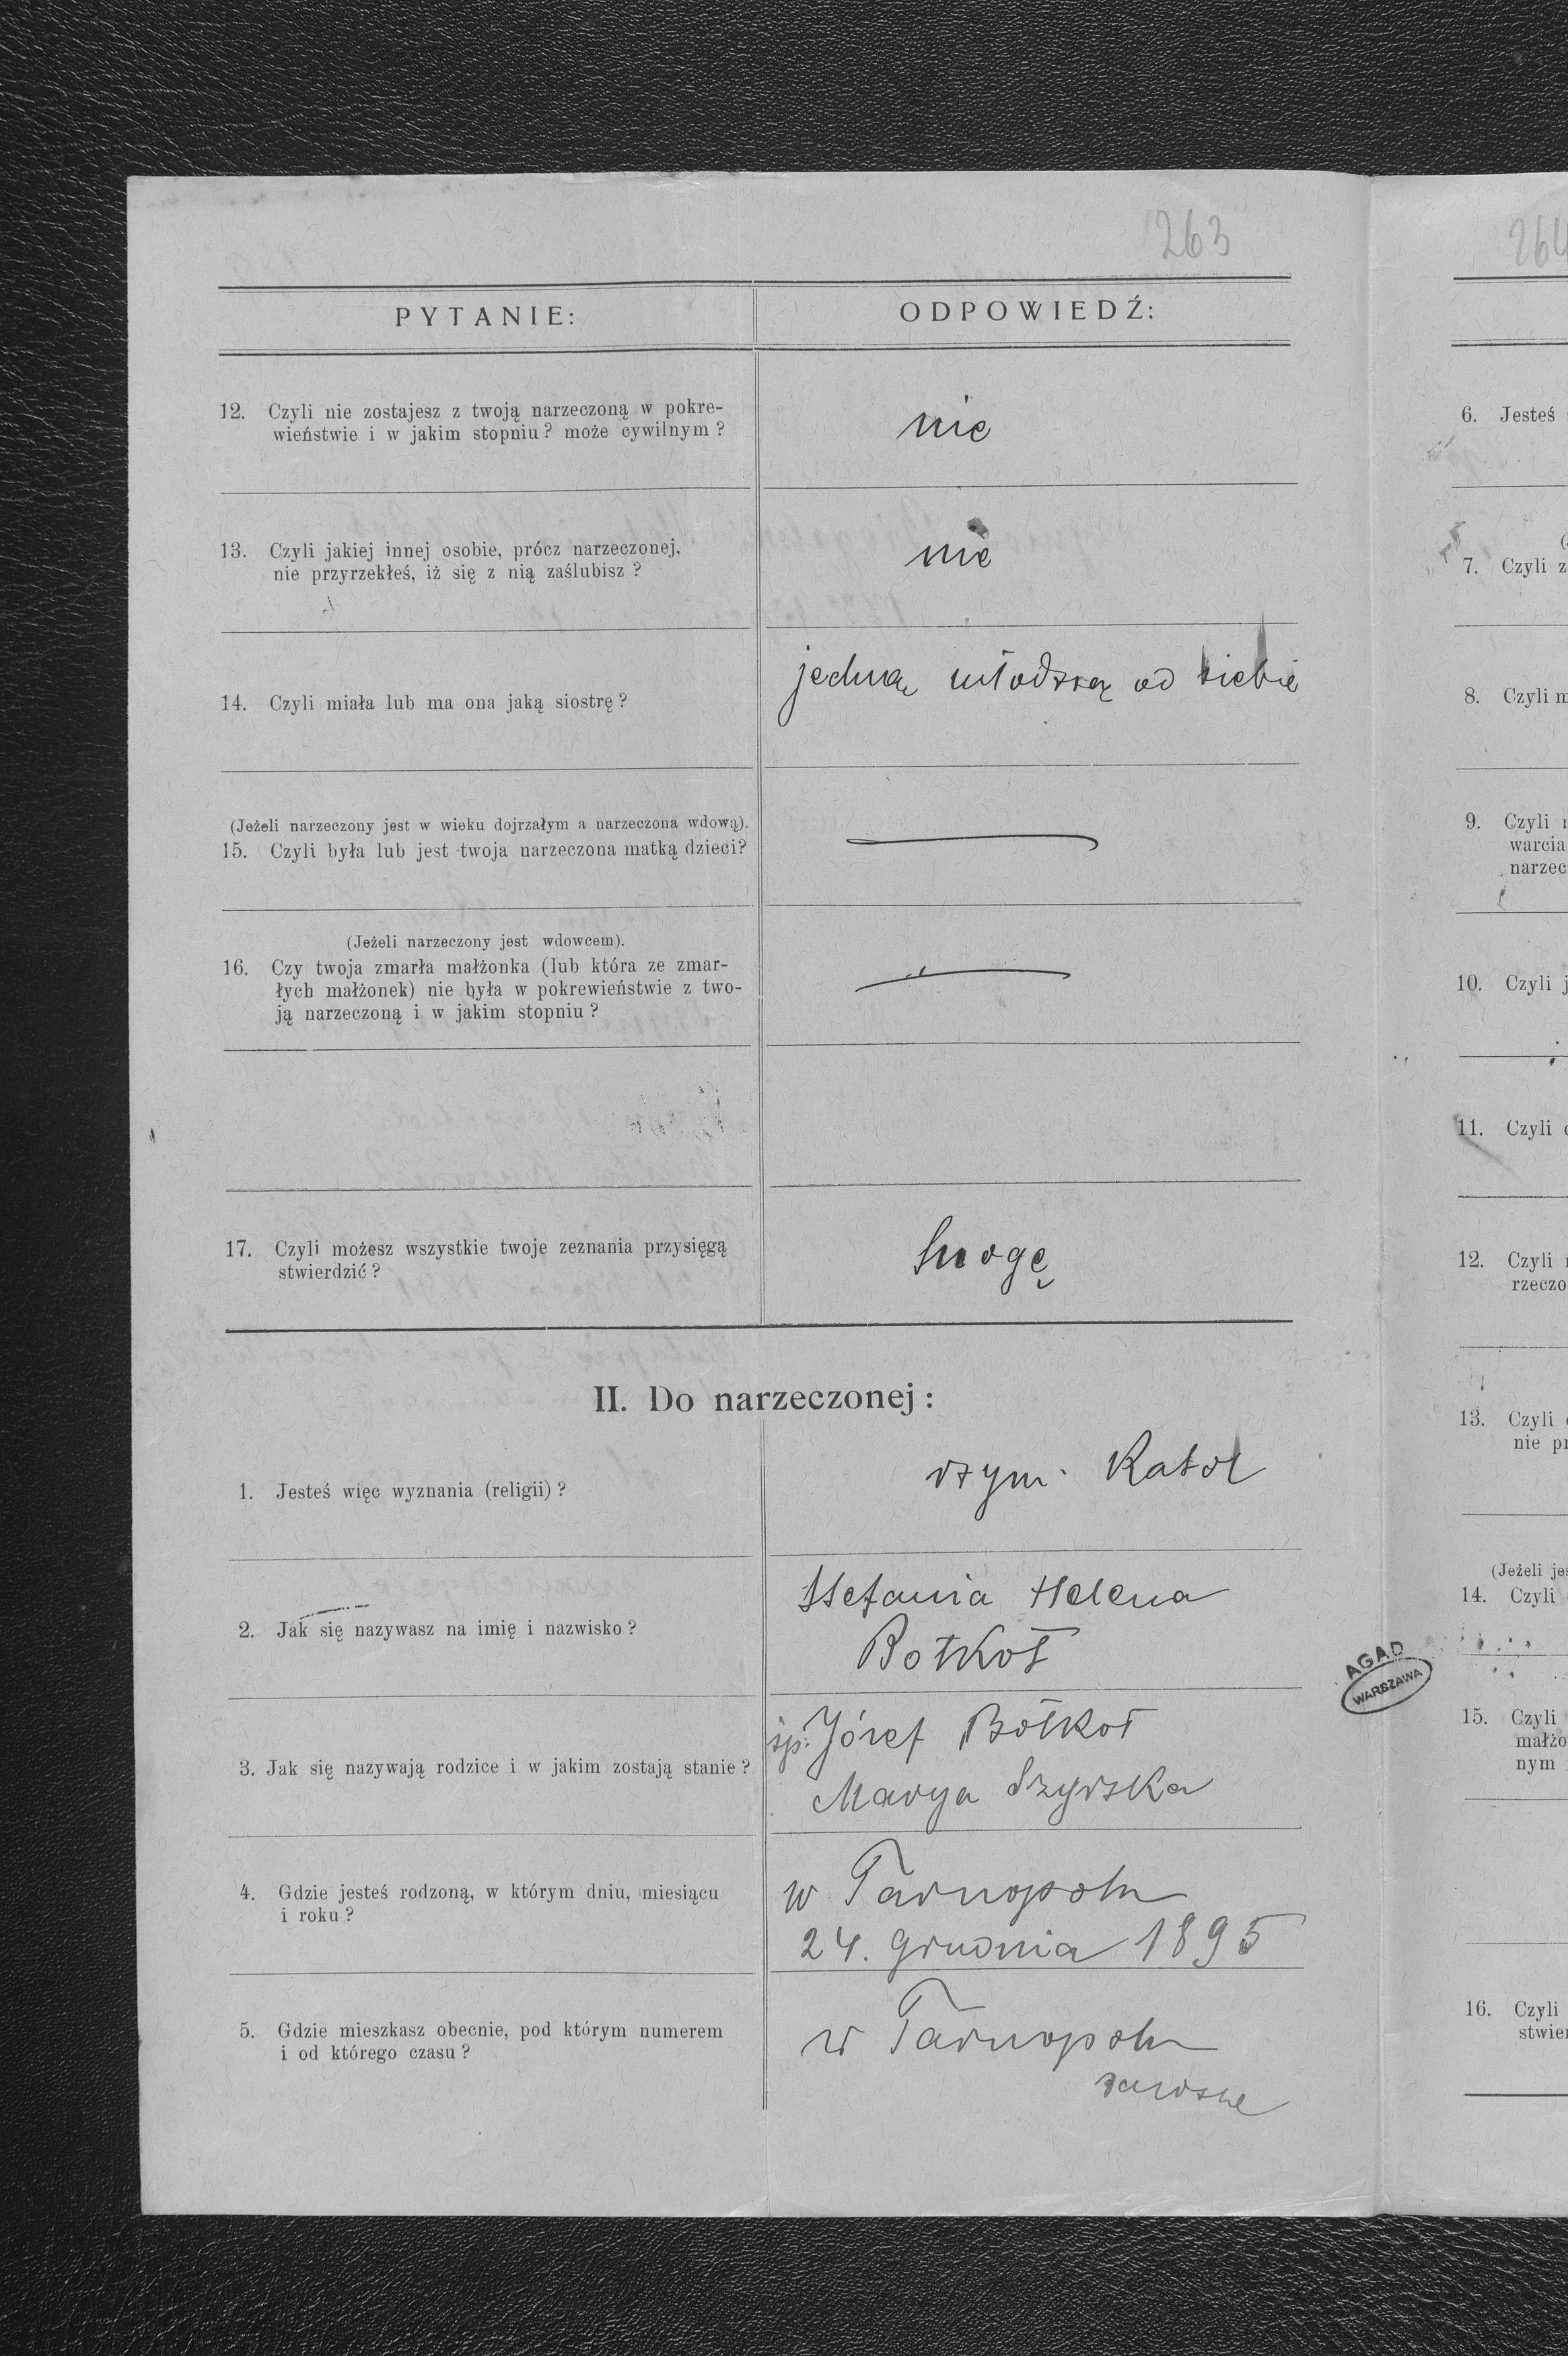 263
264
PYTANIE:
ODPOWIEDŹ:
12. Czyli nie zostajesz z twoją narzeczoną w pokre-
wieństwie i w jakim stopniu? może cywilnym?
nie
13. Czyli jakiej innej osobie, prócz narzeczonej,
nie przyrzekłeś, iż się z nią zaślubisz?
nie
14. Czyli miała lub ma ona jaką siostrę?
jedną młodszą od siebie
(Jeżeli narzeczony jest w wieku dojrzałym a narzeczona wdową).
15. Czyli była lub jest twoja narzeczona matką dzieci?
(Jeżeli narzeczony jest wdowcem).
16. Czy twoja zmarła małżonka (lub która ze zmar-
łych małżonek) nie była w pokrewieństwie z two-
ją narzeczoną i w jakim stopniu?
17. Czyli możesz wszystkie twoje zeznania przysięgą
stwierdzić?
mogę
II. Do narzeczonej:
1. Jesteś więc wyznania (religii)?
rzym. Katol
2. Jak się nazywasz na imię i nazwisko?
Stefania Helena
Botkoł
3. Jak się nazywają rodzice i w jakim zostają stanie?
śp. Józef Botkoł
Marya Szyrska
4. Gdzie jesteś rodzoną, w którym dniu, miesiącu
i roku?
w Tarnopolu
24. grudnia 1895
5. Gdzie mieszkasz obecnie, pod którym numerem
i od którego czasu?
w Tarnopolu
zawsze
AGAD
WARSZAWA
6. Jesteś
7. Czyli z
8. Czyli m
9. Czyli
warcia
narzec
10. Czyli j
11. Czyli
12. Czyli
rzeczo
13. Czyli
nie pr
(Jeżeli jes
14. Czyli
15. Czyli
małżo
nym
16. Czyli
stwier